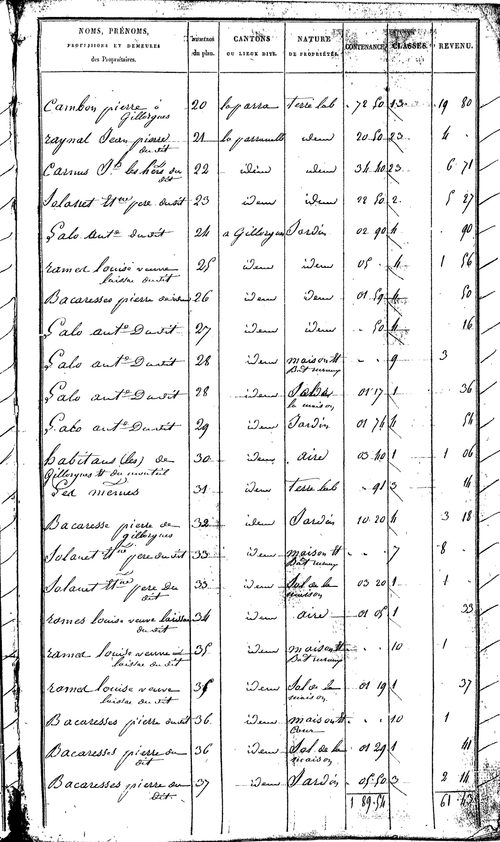 NOMS, PRÉNOMS, PROFESSIONS ET DEMEURES des Propriétaires. NUMÉROS du plan. CANTONS OU LIEUX DITS. NATURE DE PROPRIÉTÉS. CONTENANCE. CLASSES. REVENU.
Cambon pierre à Gillorgues 20 laparra terre lab . 72 50 13 19 80
raynal Jean pierre du dit 21 la parrouelle idem 20 50 23 4 .
Carnus Jh les hers du dit 22 idem idem 34 40 23 6 71
Solanet Etne pere du dit 23 idem idem 22 50 2 5 27
Galo Ante Du dit 24 a Gillorgues Jardin 02 90 4 . 90
ramed louise veuve laissac du dit 25 idem idem 05 . 4 1 56
Bacaresses pierre du dit 26 idem idem 01 59 4 50
Galo ante Du dit 27 idem idem . 50 4 16
Galo ante Du dit 28 idem maison et Bat ruraux . . 9 3
Galo ante Du dit 28 idem Sol de la maison 01 17 1 36
Galo ante Du dit 29 idem Jardin 01 74 4 54
habitans (les) de Gillorgues et du 30 idem aire 03 40 1 1 06
Les mêmes 31 idem terre lab . 91 3 14
Bacaresse pierre de gillorgues 32 idem Jardin 10 20 4 3 18
Solanet Etne pere du dit 33 idem maison et Bat ruraux . . 7 8 .
Solanet Etne pere Du dit 33 idem Sol de la maison 03 20 1 1 .
ramed louise veuve laissac du dit 34 idem aire 01 05 1 33
ramed louise veuve laissac du dit 35 idem maison et Bat ruraux . . 10 1
ramed louise veuve laissac du dit 35 idem Sol de la maison 01 19 1 37
Bacaresses pierre du dit 36 idem maison et Cour . . 10 1
Bacaresses pierre du dit 36 idem Sol de la maison 01 29 1 41
Bacaresses pierre du dit 37 idem Jardin 05 50 3 2 14
1 89 54 61 43